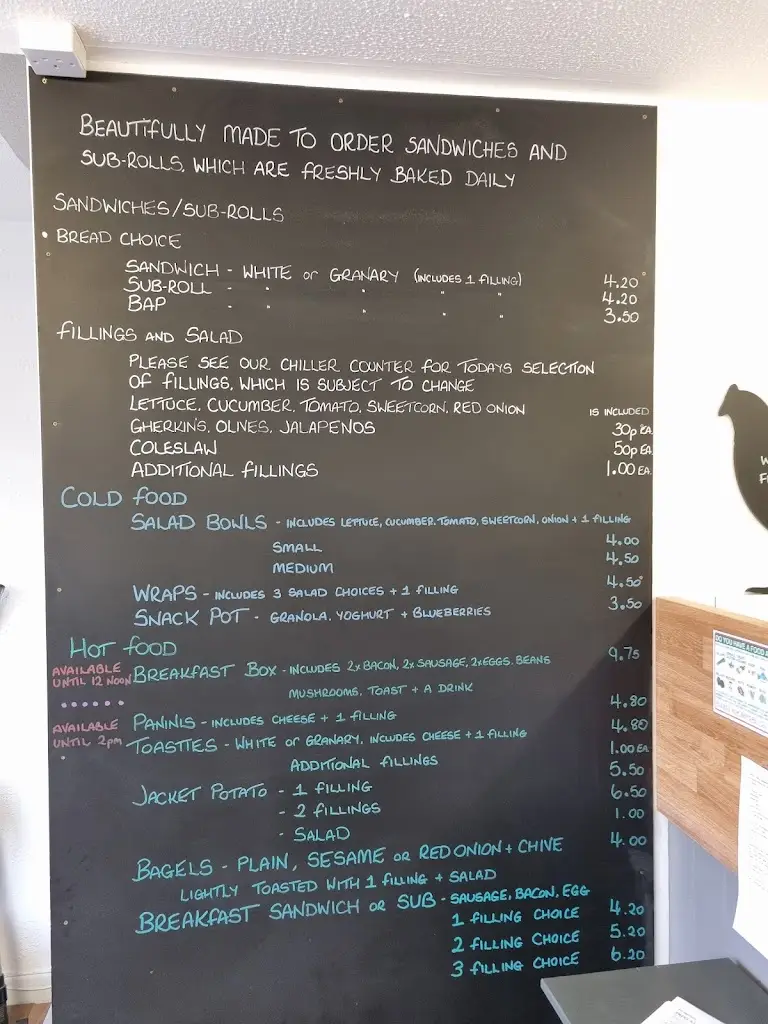 BEAUTIFULLY MADE TO ORDER SANDWICHES AND
SUB-ROLLS, WHICH ARE FRESHLY BAKED DAILY
SANDWICHES/SUB-ROLLS
• BREAD CHOICE
SANDWICH - WHITE or GRANARY (INCLUDES 1 FILLING) 4.20
SUB-ROLL - " " " " 4.20
BAP - " " " " 3.50
FILLINGS AND SALAD
PLEASE SEE OUR CHILLER COUNTER FOR TODAYS SELECTION
OF FILLINGS, WHICH IS SUBJECT TO CHANGE
LETTUCE, CUCUMBER, TOMATO, SWEETCORN, RED ONION IS INCLUDED
GHERKINS, OLIVES, JALAPENOS 30p EA.
COLESLAW 50p EA.
ADDITIONAL FILLINGS 1.00 EA.
COLD FOOD
SALAD BOWLS - INCLUDES LETTUCE, CUCUMBER, TOMATO, SWEETCORN, ONION + 1 FILLING
SMALL 4.00
MEDIUM 4.50
WRAPS - INCLUDES 3 SALAD CHOICES + 1 FILLING 4.50
SNACK POT - GRANOLA, YOGHURT + BLUEBERRIES 3.50
HOT FOOD
AVAILABLE UNTIL 12 NOON BREAKFAST BOX - INCLUDES 2x BACON, 2x SAUSAGE, 2x EGGS, BEANS 9.75
MUSHROOMS, TOAST + A DRINK
AVAILABLE UNTIL 2pm PANINIS - INCLUDES CHEESE + 1 FILLING 4.80
TOASTIES - WHITE or GRANARY, INCLUDES CHEESE + 1 FILLING 4.80
ADDITIONAL FILLINGS 1.00 EA
JACKET POTATO - 1 FILLING 5.50
- 2 FILLINGS 6.50
- SALAD 1.00
BAGELS - PLAIN, SESAME or RED ONION + CHIVE 4.00
LIGHTLY TOASTED WITH 1 FILLING + SALAD
BREAKFAST SANDWICH or SUB - SAUSAGE, BACON, EGG
1 FILLING CHOICE 4.20
2 FILLING CHOICE 5.20
3 FILLING CHOICE 6.20